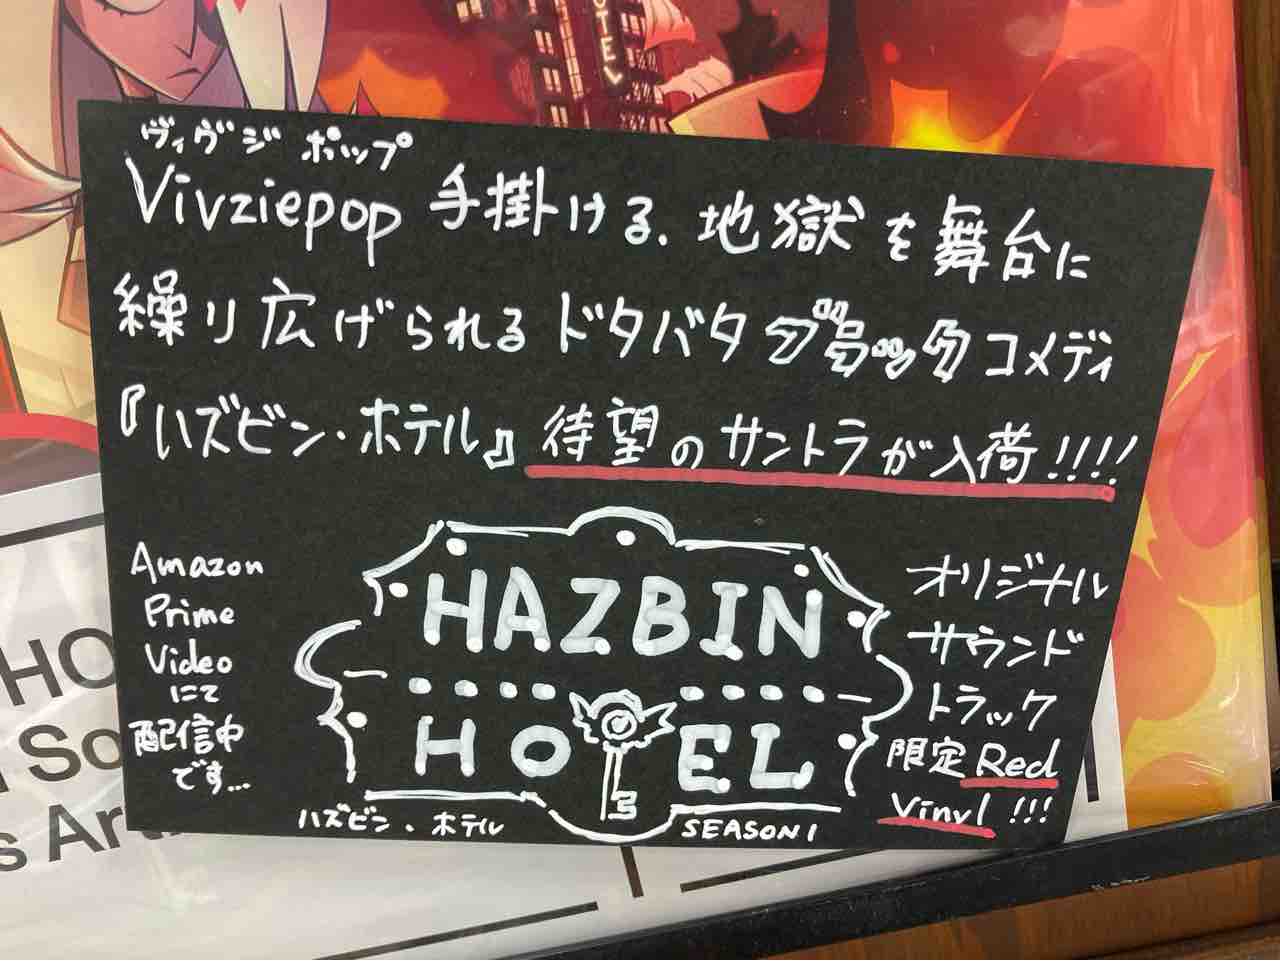 HOTEL
ヴィヴジ ポップ
Vivziepop 手掛ける、地獄を舞台に
繰り広げられるドタバタブラックコメディ
『ハズビン・ホテル』待望のサントラが入荷!!!!
Amazon
Prime
Video
にて
配信中
です...
HAZBIN
HOTEL
ハズビン・ホテル
SEASON1
オリジナル
サウンド
トラック
限定Red
Vinyl!!!
HO
So
s Art